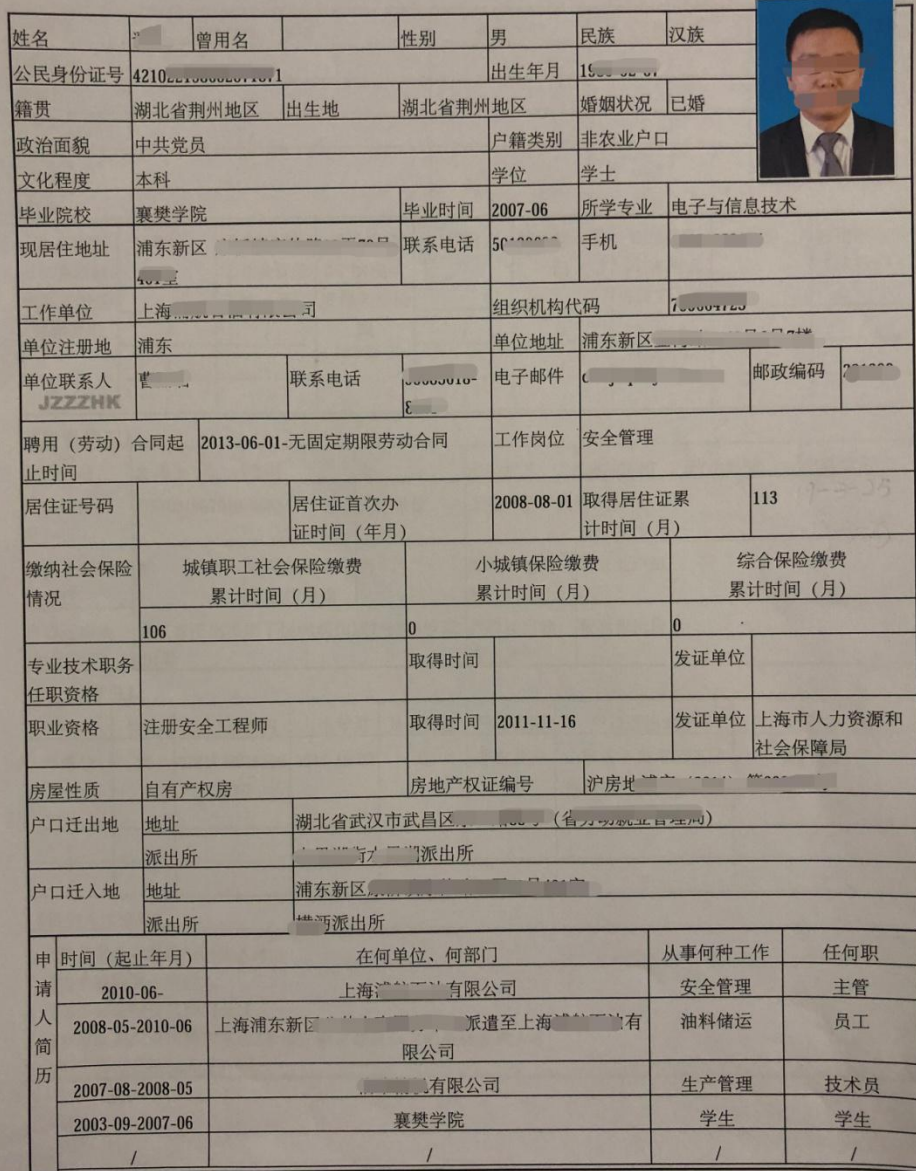 姓名 曾用名 性别 男 民族 汉族
公民身份证号 出生年月
籍贯 湖北省荆州地区 出生地 湖北省荆州地区 婚姻状况 已婚
政治面貌 中共党员 户籍类别 非农业户口
文化程度 本科 学位 学士
毕业院校 襄樊学院 毕业时间 2007-06 所学专业 电子与信息技术
现居住地址 浦东新区 联系电话 手机
工作单位 上海 公司 组织机构代码
单位注册地 浦东 单位地址 浦东新区
单位联系人 联系电话 电子邮件 邮政编码
JZZZHK
聘用（劳动）合同起 2013-06-01-无固定期限劳动合同 工作岗位 安全管理
止时间
居住证号码 居住证首次办 2008-08-01 取得居住证累 113
证时间（年月） 计时间（月）
缴纳社会保险 城镇职工社会保险缴费 小城镇保险缴费 综合保险缴费
情况 累计时间（月） 累计时间（月） 累计时间（月）
106 0 0
专业技术职务 取得时间 发证单位
任职资格
职业资格 注册安全工程师 取得时间 2011-11-16 发证单位 上海市人力资源和
社会保障局
房屋性质 自有产权房 房地产权证编号 沪房地
户口迁出地 地址 湖北省武汉市武昌区
派出所 派出所
户口迁入地 地址 浦东新区
派出所 派出所
申请人简历 时间（起止年月） 在何单位、何部门 从事何种工作 任何职
2010-06- 上海 有限公司 安全管理 主管
2008-05-2010-06 上海浦东新区 派遣至上海 有 油料储运 员工
限公司
2007-08-2008-05 有限公司 生产管理 技术员
2003-09-2007-06 襄樊学院 学生 学生
/ / / /